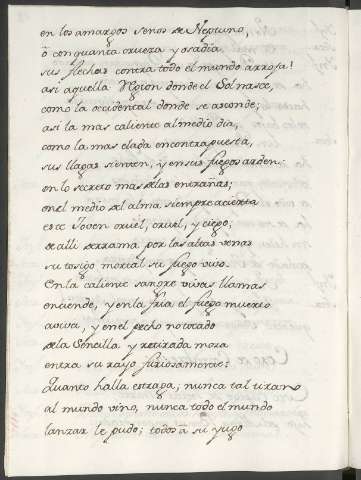 en los amargos senos de Neptuno,
ô con quanta crueza y osadia
sus flechas contra todo el mundo arroja!
asi aquella Region donde el Sol nasce,
como la occidental donde se asconde;
asi la mas caliente al medio dia,
como la mas elada encontrapuesta,
sus llagas sienten, y en sus fuegos arden.
en lo secreto mas de las entrañas;
en el medio del alma siempre acierta
este Joven cruel, cruel, y ciego;
de alli derrama por las altas venas
su tosigo mortal su fuego vivo.
En la caliente sangre vivas llamas
enciende, y en la fria el fuego muerto
aviva, y en el pecho no tocado
de la Sencilla y retirada moza
entra su rayo furiosamente:
Quanto halla estraga; nunca tal tirano
al mundo vino, nunca todo el mundo
lanzar le pudo; todos â su yugo